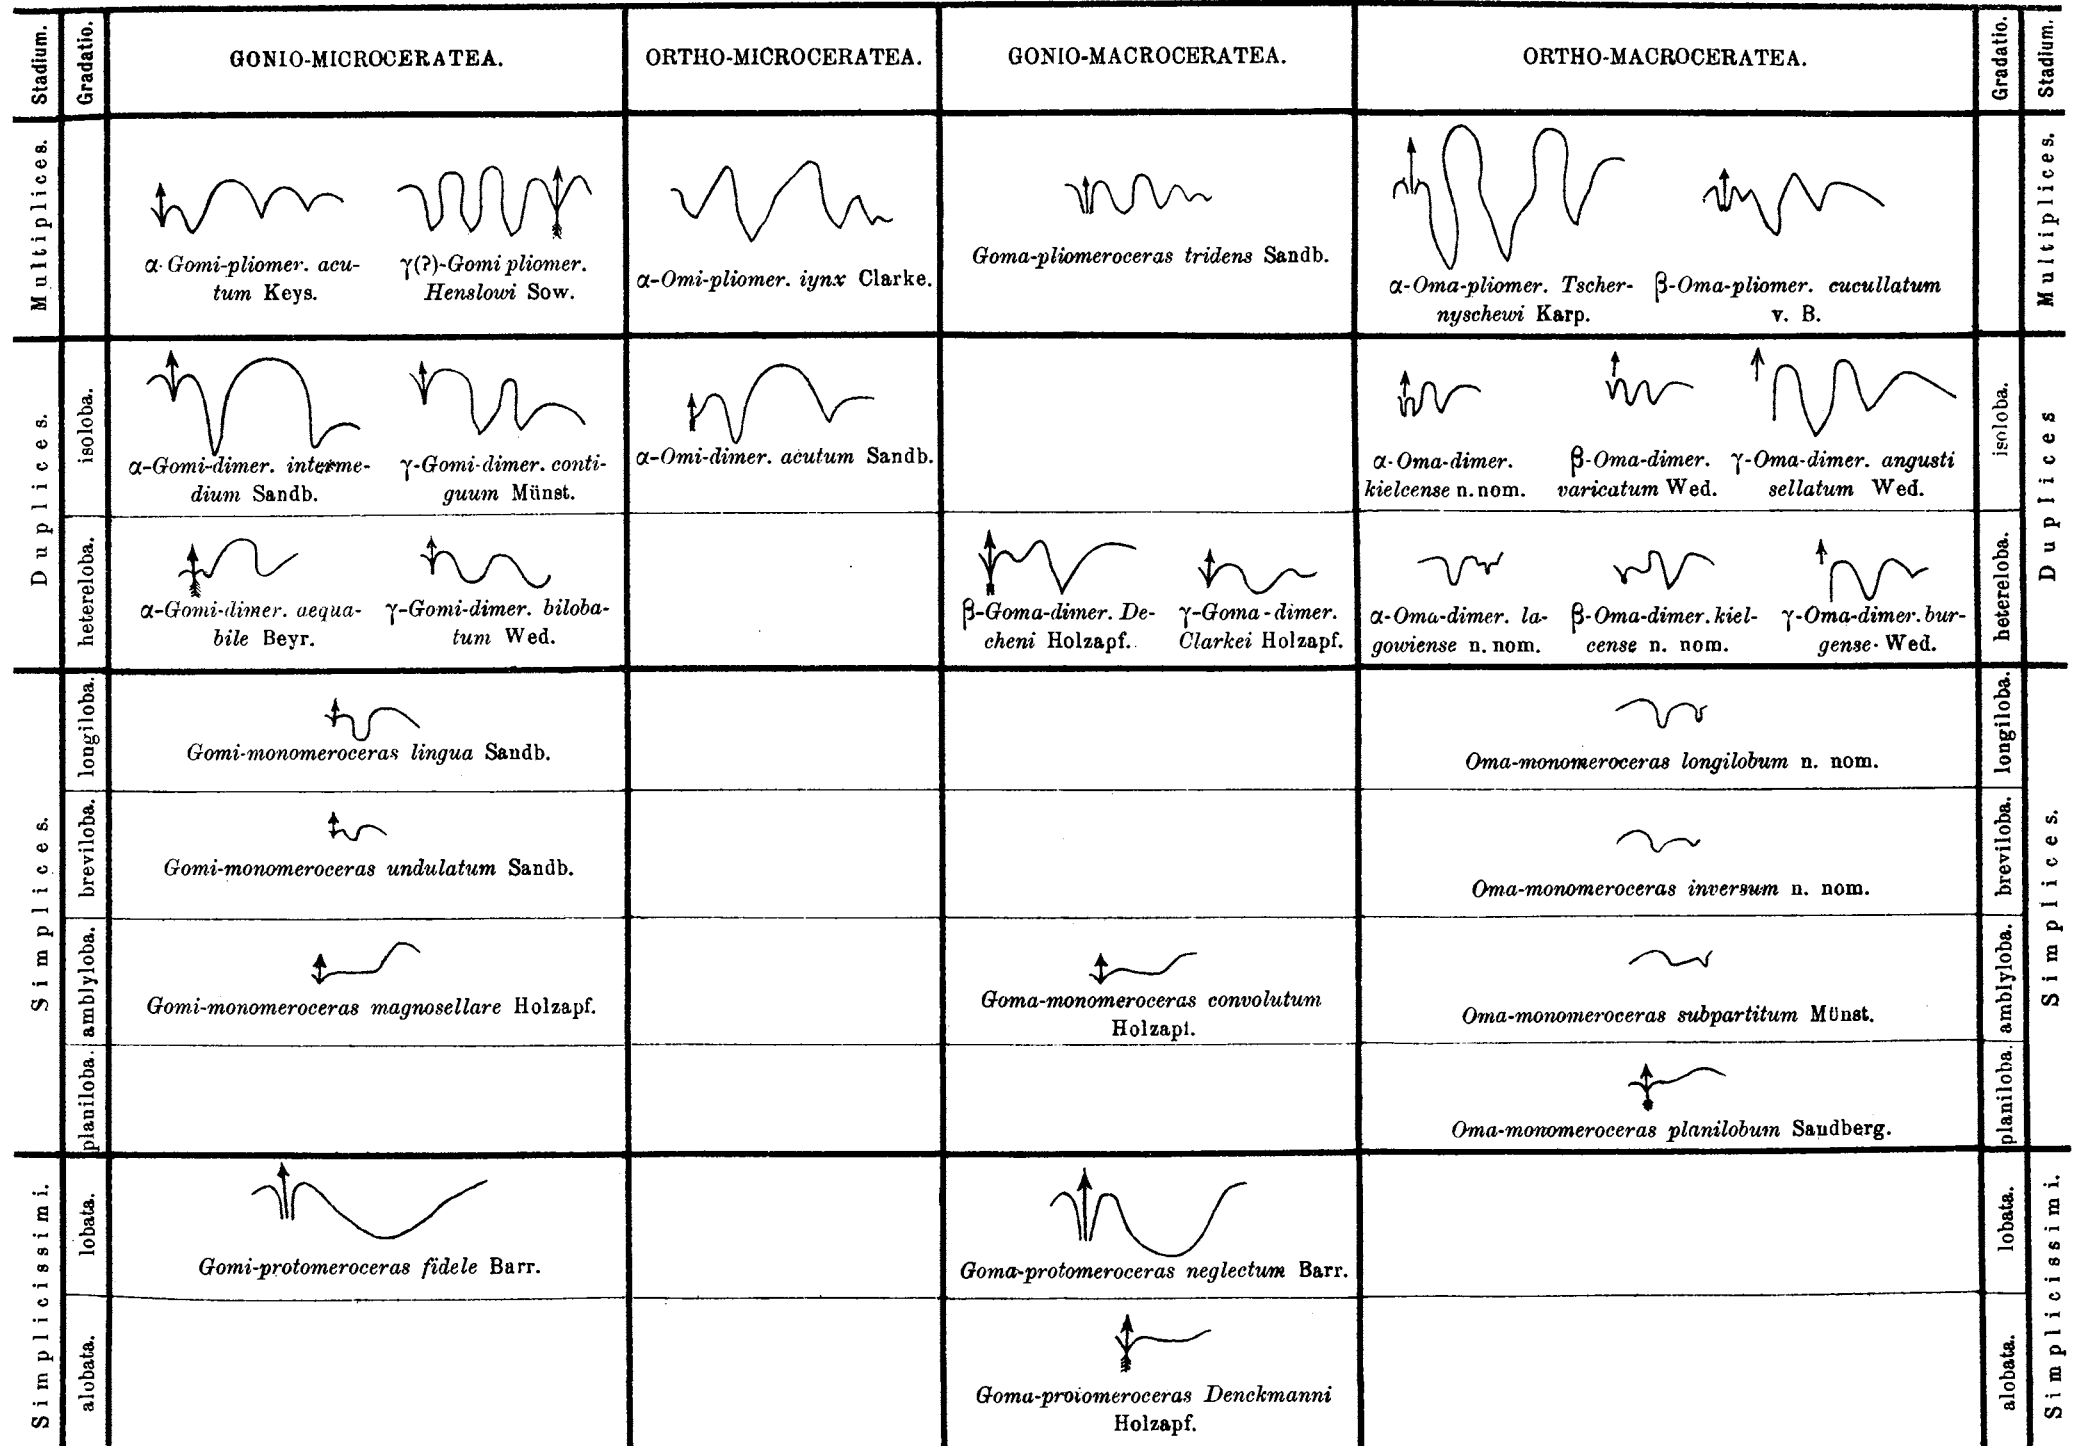 Stadium.
Gradatio.
GONIO-MICROCERATEA.
ORTHO-MICROCERATEA.
GONIO-MACROCERATEA.
ORTHO-MACROCERATEA.
Gradatio.
Stadium.
Multiplices.
α-Gomi-pliomer. acu-
tum Keys.
γ(?)-Gomi pliomer.
Henslowi Sow.
α-Omi-pliomer. iynx Clarke.
Goma-pliomeroceras tridens Sandb.
α-Oma-pliomer. Tscher-
nyschewi Karp.
β-Oma-pliomer. cucullatum
v. B.
Multiplices.
Duplices.
isoloba.
α-Gomi-dimer. interme-
dium Sandb.
γ-Gomi-dimer. conti-
guum Münst.
α-Omi-dimer. acutum Sandb.
α-Oma-dimer.
kielcense n. nom.
β-Oma-dimer.
varicatum Wed.
γ-Oma-dimer. angusti
sellatum Wed.
isoloba.
Duplices
hetereloba.
α-Gomi-dimer. aequa-
bile Beyr.
γ-Gomi-dimer. biloba-
tum Wed.
β-Goma-dimer. De-
cheni Holzapf.
γ-Goma-dimer.
Clarkei Holzapf.
α-Oma-dimer. la-
gowiense n. nom.
β-Oma-dimer. kiel-
cense n. nom.
γ-Oma-dimer. bur-
gense· Wed.
hetereloba.
Simplices.
longiloba.
Gomi-monomeroceras lingua Sandb.
Oma-monomeroceras longilobum n. nom.
longiloba.
Simplices.
breviloba.
Gomi-monomeroceras undulatum Sandb.
Oma-monomeroceras inversum n. nom.
breviloba.
amblyloba.
Gomi-monomeroceras magnosellare Holzapf.
Goma-monomeroceras convolutum
Holzapf.
Oma-monomeroceras subpartitum Münst.
amblyloba.
planiloba.
Oma-monomeroceras planilobum Sandberg.
planiloba.
Simplicissimi.
lobata.
Gomi-protomeroceras fidele Barr.
Goma-protomeroceras neglectum Barr.
lobata.
Simplicissimi.
alobata.
Goma-protomeroceras Denckmanni
Holzapf.
alobata.